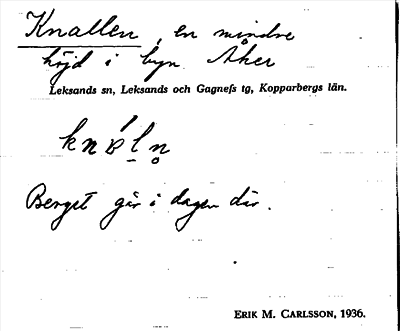 Knallen, en mindre
höjd i byn Åker
Leksands sn, Leksands och Gagnefs tg, Kopparbergs län.
Berget går i dagen där.
ERIK M. CARLSSON, 1936.